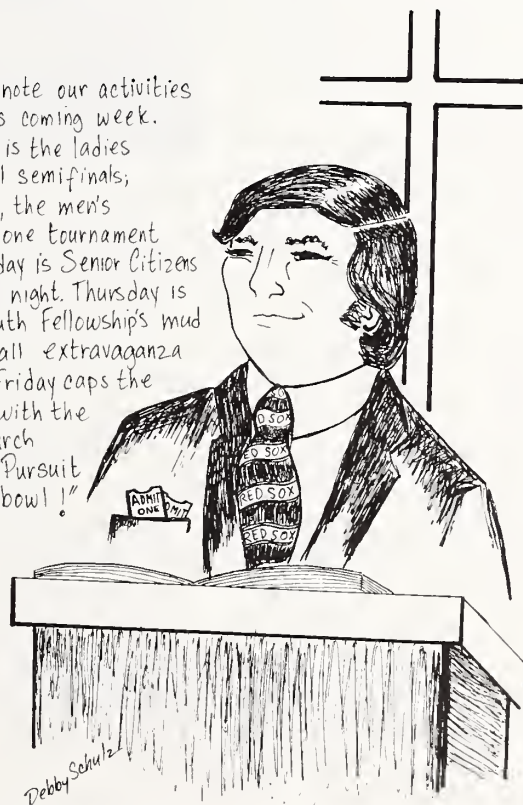 note our activities
s coming week.
is the ladies
l semifinals;
, the men's
one tournament
day is Senior Citizens
night. Thursday is
uth Fellowship's mud
all extravaganza
Friday caps the
with the
rch
Pursuit
bowl!"
ADMIT
ONE
MIT
D SOX
ED SOX
RED SOX
RED SOX
Debby Schulz